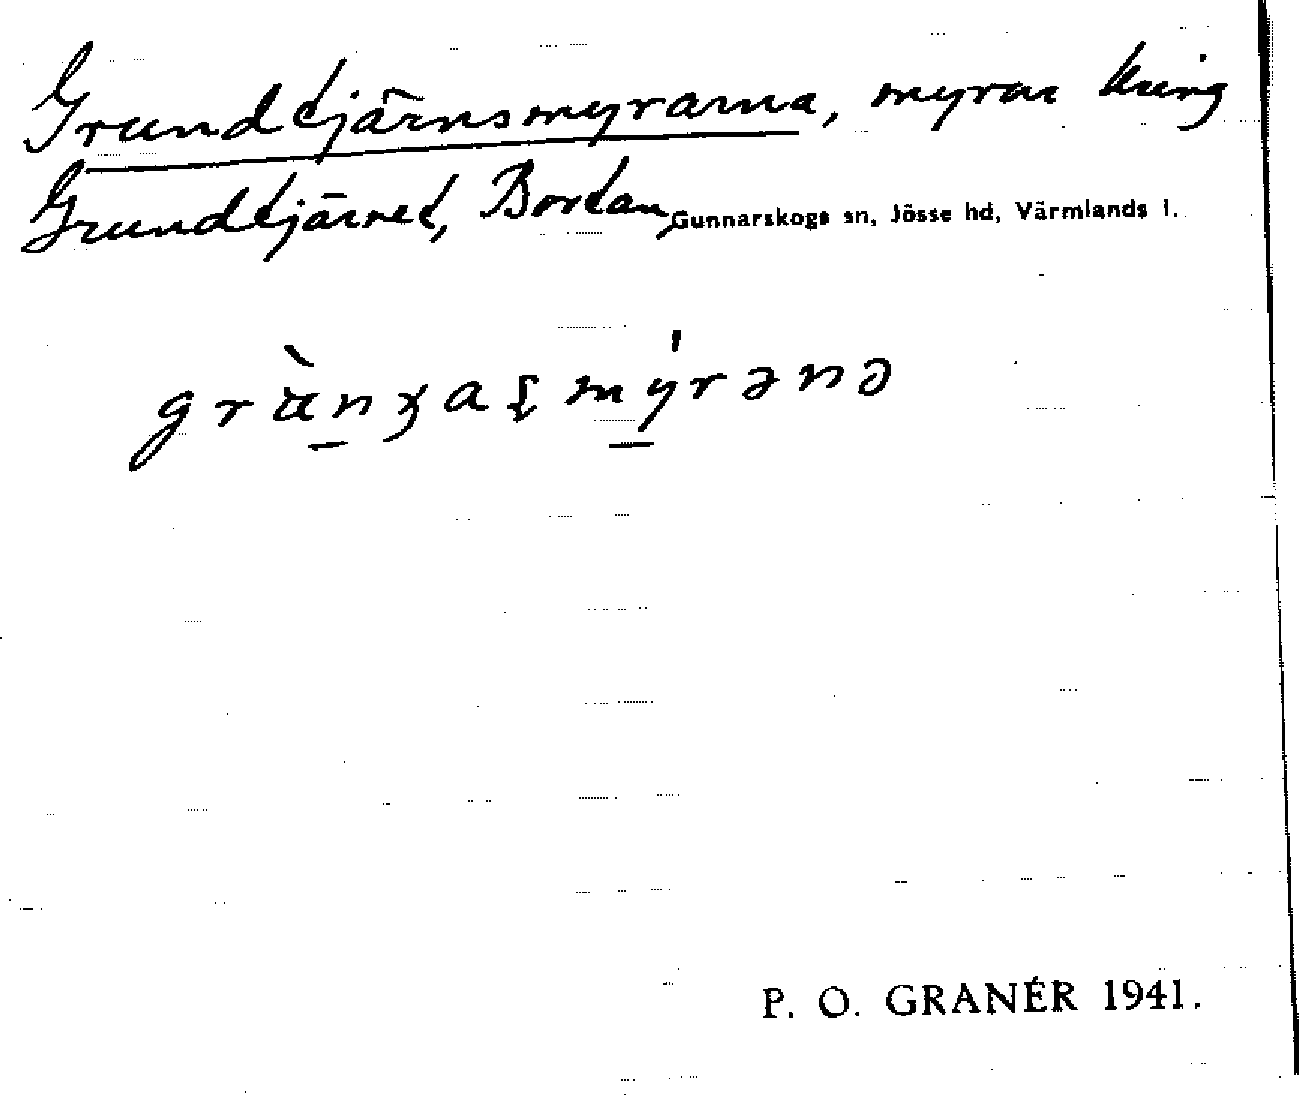 Grundtjärnsmyrarna, myrar kring
Grundtjärnet, Bortan, Gunnarskogs sn, Jösse hd, Värmlands l.
P. O. GRANÉR 1941.